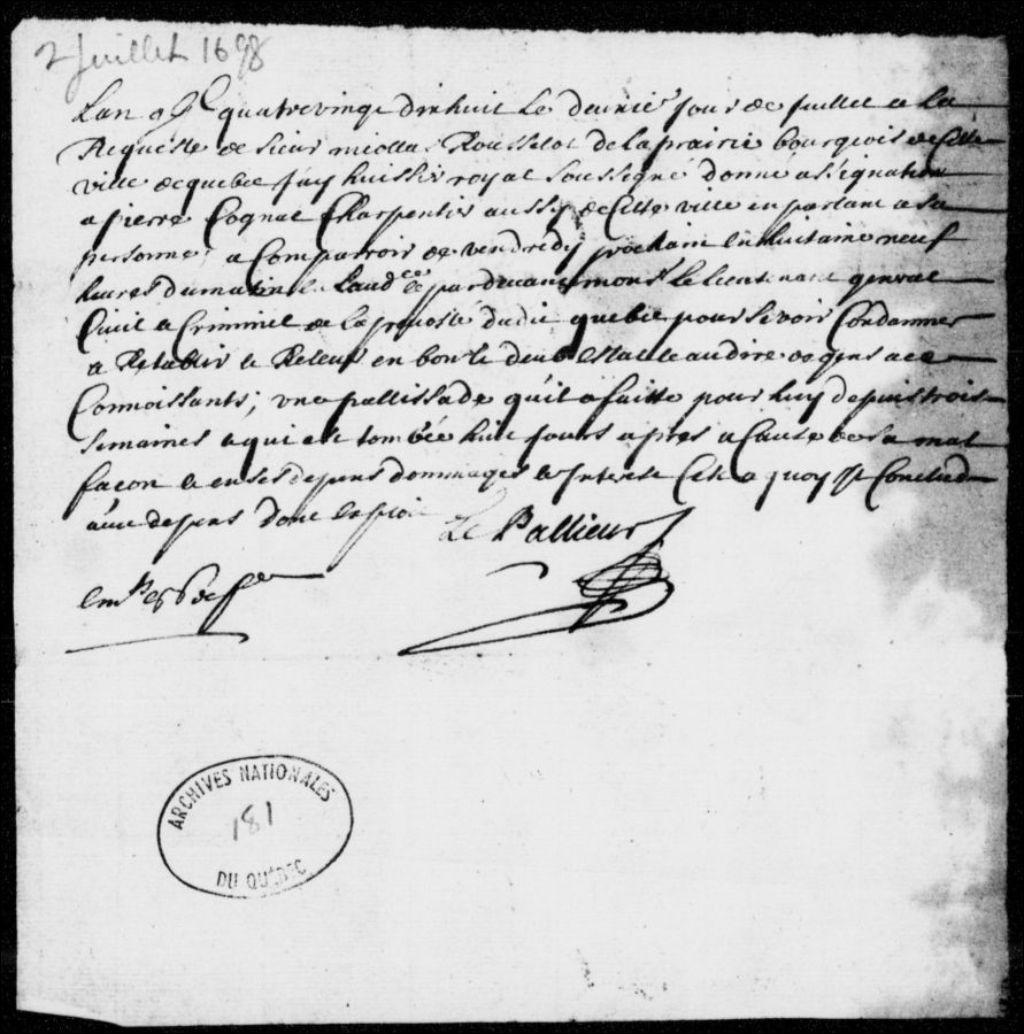 2 Juillet 1698
Lan quatrevingt dixhuit Le deuxie Jour de Juillet a La
Requeste de Sieur nicollas Rousselot de la prairie bourgeois de Cette
ville de quebec Jay huissier royal Soussigné donné assignation
a pierre Cognac Charpentier aussy de Cette ville en parlant a Sa
personne, a Comparoir de vendredy prochain en huitaine neuf
heures du matin en Laudce pardevant monsr Le Lieutenant general
Civil et Criminel de La prevosté dudit quebec pour Se voir Condamner
a Retablir et Relever en bon et deub Estat et au dire de gens a ce
Connoissants, une pallissade qu'il a faitte pour luy depuis trois
Semaines et qui est tombée huit Jours apres a Cause de Sa mal
facon et en Ses depens dommages et Interest Cest a quoy Il Conclud
avec depens dont
Le Pallieur
ARCHIVES NATIONALES
181
DU QUÉBEC